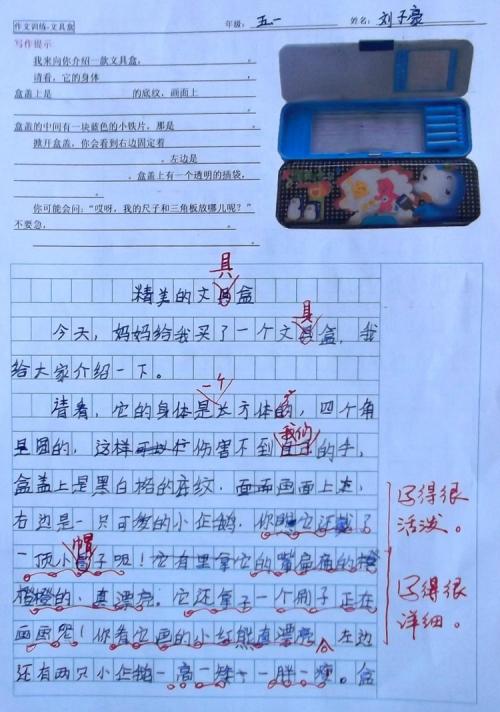 作文训练-文具盒
年级： 五一 姓名： 刘子豪
写作提示
我来向你介绍一款文具盒，
请看，它的身体
盒盖上是 的底纹，画面上
盒盖的中间有一块蓝色的小铁片，那是
掀开盒盖，你会看到右边固定着
，左边是
，盒盖上有一个透明的插袋，
你可能会问：“哎呀，我的尺子和三角板放哪儿呢？”
不要急，
具
精美的文具盒
具
今天，妈妈给我买了一个文具盒，我
给大家介绍一下。
一个
请看，它的身体是长方体的，四个角
我们
是圆的，这样 伤害不到自己的手，
盒盖上是黑白格的底纹， 画面上
右边是一只可爱的小企鹅，你 它还戴了
帽
一顶小帽子呢！它 的嘴扁扁的橙
橙橙的，真漂亮。它还拿了一个刷子正在
画画呢！你看它画的小红熊真漂亮，左边
还有两只小企鹅一高一矮，一胖一瘦。盒
写得很
活泼。
写得很
详细。